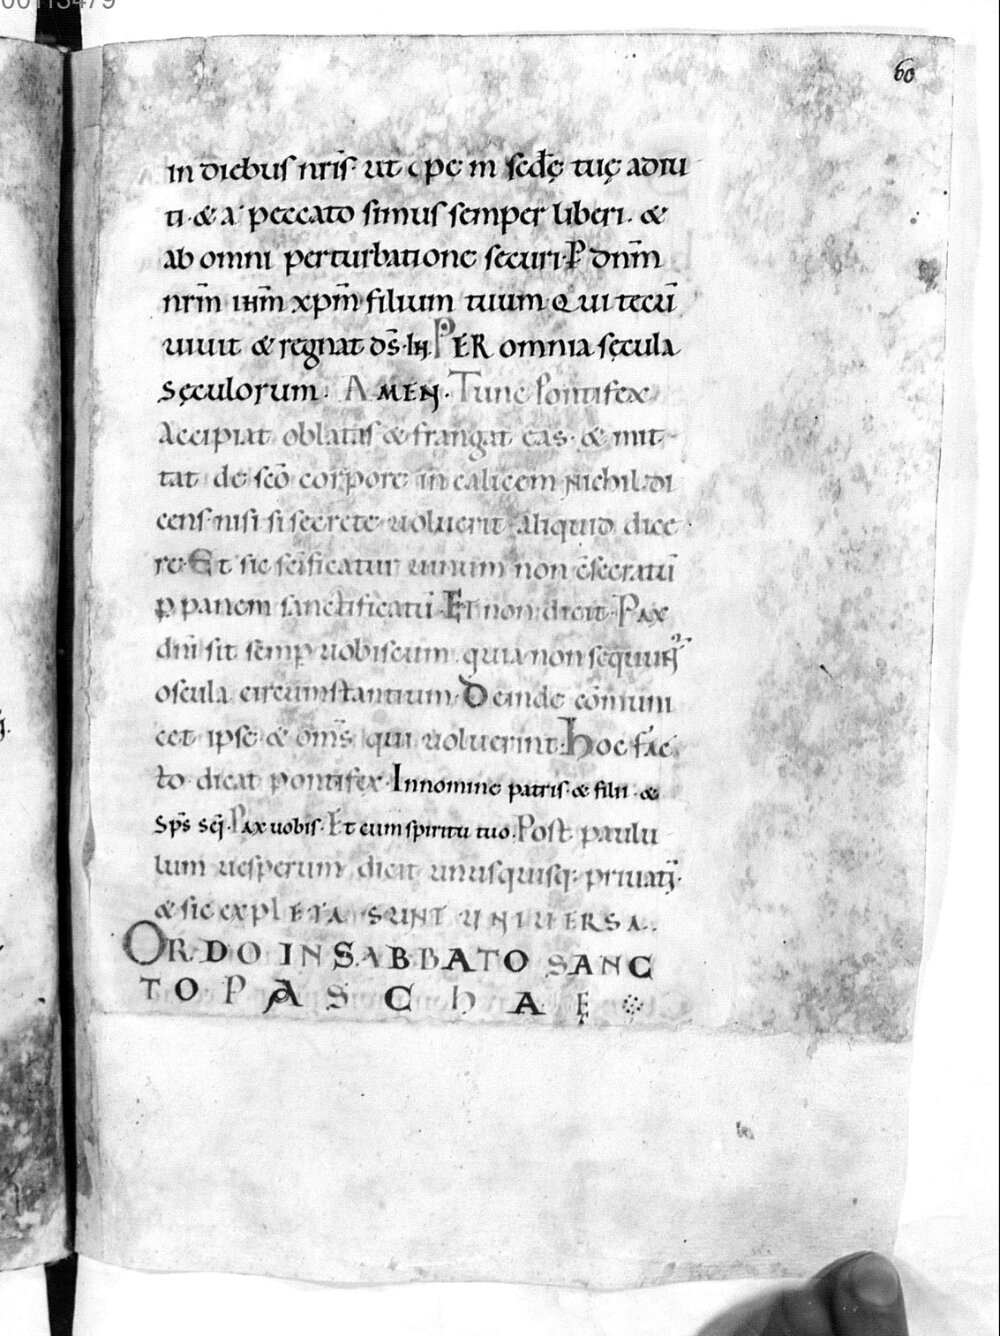 00113479
60
in diebus nr̄is· ut ope m̄ sc̄dę tuę adiu
ti· & a peccato simus semper liberi· &
ab omni perturbatione securi· P dn̄m
nr̄m ih̄m xp̄m filium tuum· Qui tecū
uiuit & regnat ds̄· IN· PER omnia sęcula
sęculorum· AMEN· Tunc Pontifex
Accipiat oblatas & frangat eas· & mit
tat de sc̄o corpore in calicem Nichil di
cens· nisi si secrete uoluerit aliquid dice
re· Et sic sc̄ificatur uinum non c̄secratū
ꝑ panem sanctificatū· Et non dicit· Pax
dn̄i sit semꝑ uobiscum· quia non sequunt᷑
oscula circumstantium· Deinde cōmuni
cet ipse & om̄s qui uoluerint· Hoc fac
to dicat pontifex· In nomine patris & filii· &
Sps̄ sc̄i· Pax uobis· Et cum spiritu tuo· Post paulu
lum uesperum dicit unusquisq; priuatī·
& sic expLETA SUNT UNIUERSA·
ORDO IN SABBATO SANC
TO PASCHAĘ